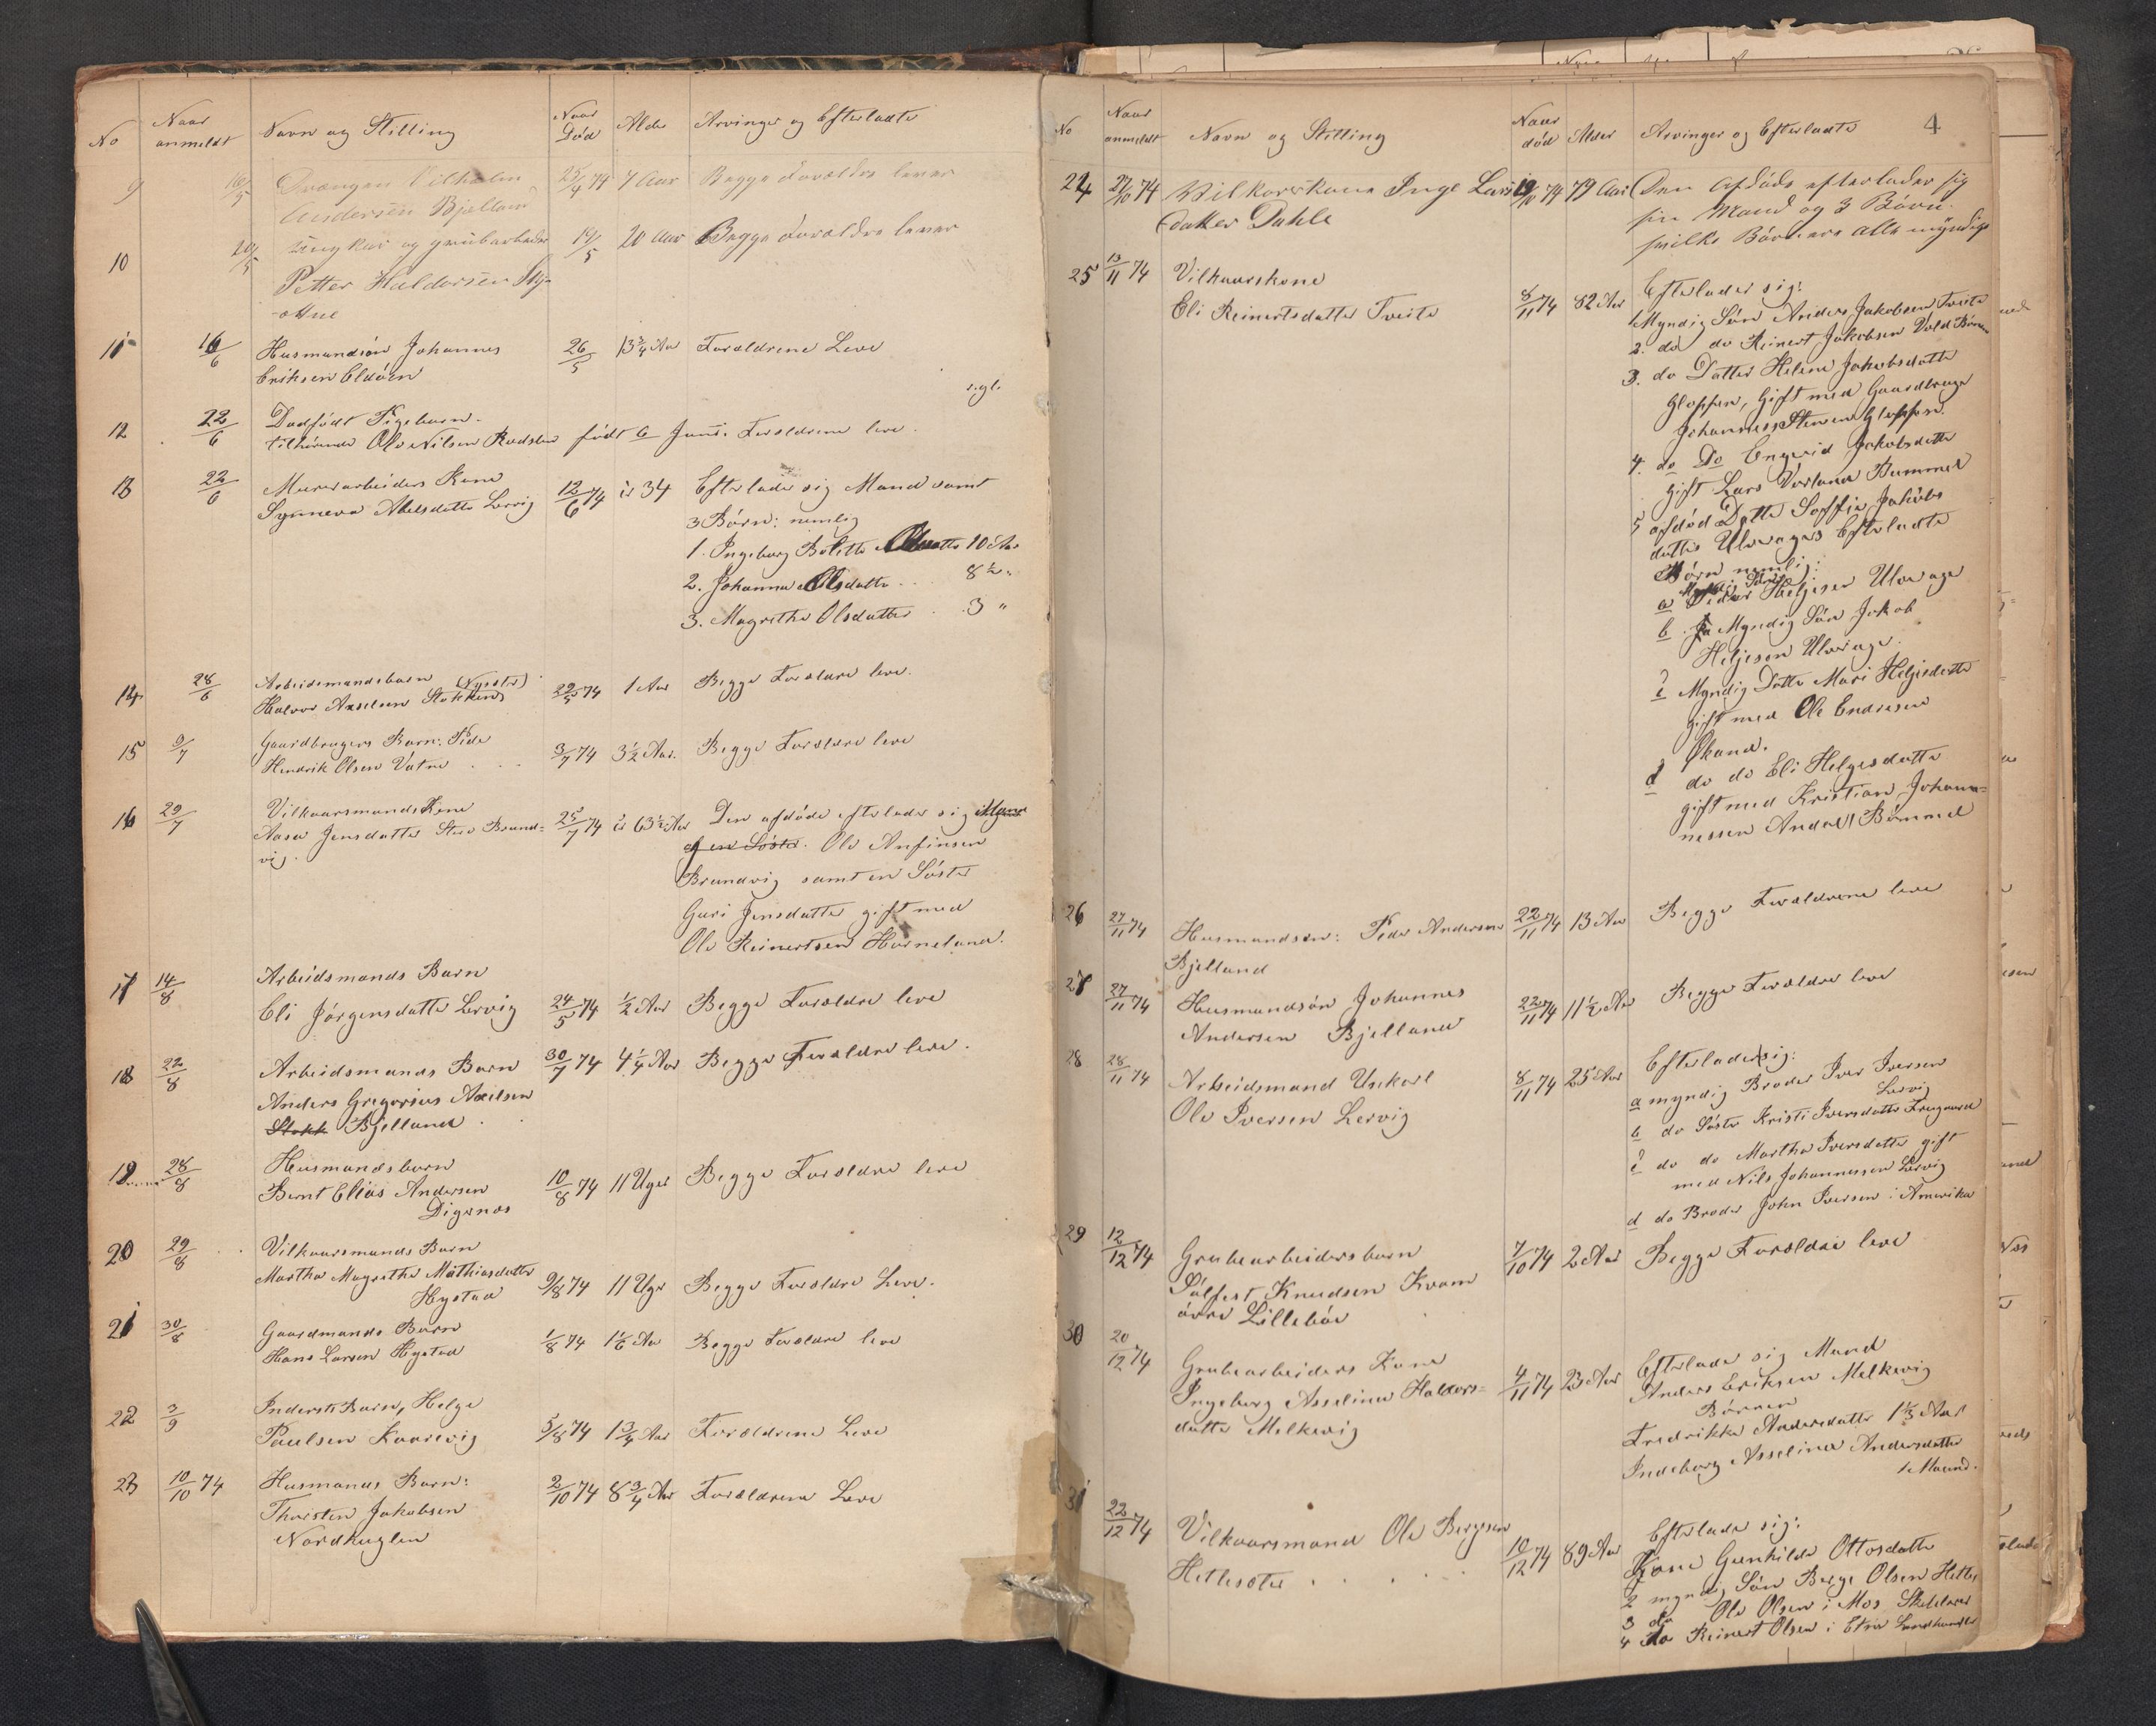 No Naar anmeldt Navn og Stilling Naar Död Alder Arvinger og Efterladte
9 16/5 Drengen Vilhelm 25/4 74 7 Aar Begge Forældre lever
Andersen Bjelland
10 20/5 Ungkar og grubarbeider 14/5 20 Aar Begge Forældre lever
Petter Haldorsen Sky-
11 16/6 Husmandsön Johannes 26/5 13 3/4 Aar Forældrene Leve
Eriksen Eldöen
12 22/6 Dødfödt Pigebarn.
tilhörende Ole Nilsen Rødsten født 6 Juni. Forældrene leve.
13 22/6 Murerarbeiders Kone 12/6 74 34 Efterlader sig Mand samt
Synneva Abelsdatter Lervig 3 Börn: nemlig
1. Ingeborg Bolette Olsdatter 10 Aar
2. Johanna Olsdatter 8 1/2 "
3. Magrethe Olsdatter 3 "
14 28/6 Arbeidsmandsbarn 29/5 74 1 Aar Begge Forældre leve.
Halvor Axelsen Stokken
15 9/7 Gaardbrugers Barn: Peder 3/7 74 3 1/2 Aar. Begge Forældre leve
Hendrik Olsen Vatne
16 29/7 Vilkaarsmands Kone 25/7 74 63 1/2 Aar Den afdöde efterlader sig Mand
Aasa Jensdatter Brand-
vig.
og en Söster. Ole Anfinsen
Brandvig samt en Söster
Guri Jensdatter gift med
Ole Reinertsen Horneland.
17 14/8 Arbeidsmands Barn
Eli Jörgensdatter Lervig 24/5 74 1/2 Aar Begge Forældre leve
18 22/8 Arbeidsmands Barn 30/7 74 4 1/4 Aar Begge Forældre leve.
Anders Gregorius Axelsen
Stokk Bjelland
19 28/8 Husmandsbarn
Bernt Elias Andersen 10/8 74 11 Uger Begge Forældre leve
Digernæs
20 29/8 Vilkaarsmands Barn
Martha Magrethe Mathiasdatter 9/8 74 11 Uger Begge Forældre Leve.
Hystad
21 30/8 Gaardmands Barn 1/8 74 Begge Forældre leve
Hans Larsen Hystad
22 3/9 Inderst Barn, Helge
Paulsen Kaarevig 5/8 74 1 3/4 Aar Forældrene Leve
23 10/10 74 Husmands Barn: 2/10 74 8 3/4 Aar Forældrene Leve
Thorsten Jakobsen
Nordhuglen
No Naar anmeldt Navn og Stilling Naar död Alder Arvinger og Efterladte 4
24 27/10 74 Vilkorskone Inge Lars 19/10 74 79 Aar Den Afdöde efterlader sig
datter Dahle sin Mand og 3 Börn.
hvilke Börn ere alle myndige
25 13/11 74 Vilkaarskone
Eli Reinertsdatter Tveite 8/11 74 82 Aar Efterlader sig:
1 Myndig Sön Anders Jakobsen Tveite
2. do do Reinert Jakobsen Vold
3. do Datter Helene Jakobsdatter
Gloppen, Gift med Gaardbruger
Johannes Gloppen.
4. do Do Engerid Jakobsdatter
gift Lars Vorland Bummel
5 afdöd Datter Soffie Jakobs
datter Ulveages Efterladte
Börn nemlig:
Myndig Sön
a Peder Heljesen Ulveage
b. Myndig Sön Jakob
Heljesen Ulveage.
c Myndig Datter Mari Heljesdatter
gift med Ole Endresen
Økland.
d do do Eli Helgesdatter
gift med Kristian Johan-
nessen Andal Bömmel
26 27/11 74 Husmandsön: Peder Andersen 22/11 74 13 Aar Begge Forældrene leve
Bjelland
27 27/11 74 Husmandsön Johannes 22/11 74 11 1/2 Aar Begge Forældre leve
Andersen Bjelland
28 28/11 74 Arbeidsmand Unkarl 8/11 74 25 Aar Efterlader sig:
Ole Iversen Lervig
a myndig Broder Iver Iversen
Lervig
b do Söster Kristi Iversdatter
c do do Martha Iversdatter gift
med Nils Johannessen Lervig
d do Broder John Iversen i Amerika
29 12/12 74 Grubearbeidersbarn 7/10 74 2 Aar Begge Forældre leve
Sølfest Knudsen Kvam
övre Lillebö
30 20/12 74 Grubearbeiders Kone 4/11 74 23 Aar Efterlader sig Mand
Ingeborg Asseline Haldors-
datter Melkevig
Anders Eriksen Melkevig
Börnene
Fredrikke Andersdatter 1 1/3 Aar
Indeborg Asseline Andersdatter
1 Maaned.
31 22/12 74 Vilkaarsmand Ole Bergesen 10/12 74 89 Aar Efterlader sig:
Hetlesæter
Kone Gunhilde Ottosdatter
2 myndig Sön Berge Olsen Hetle
3 do Ole Olsen i Mos
4 do Reinert Olsen i Etne Landhandler